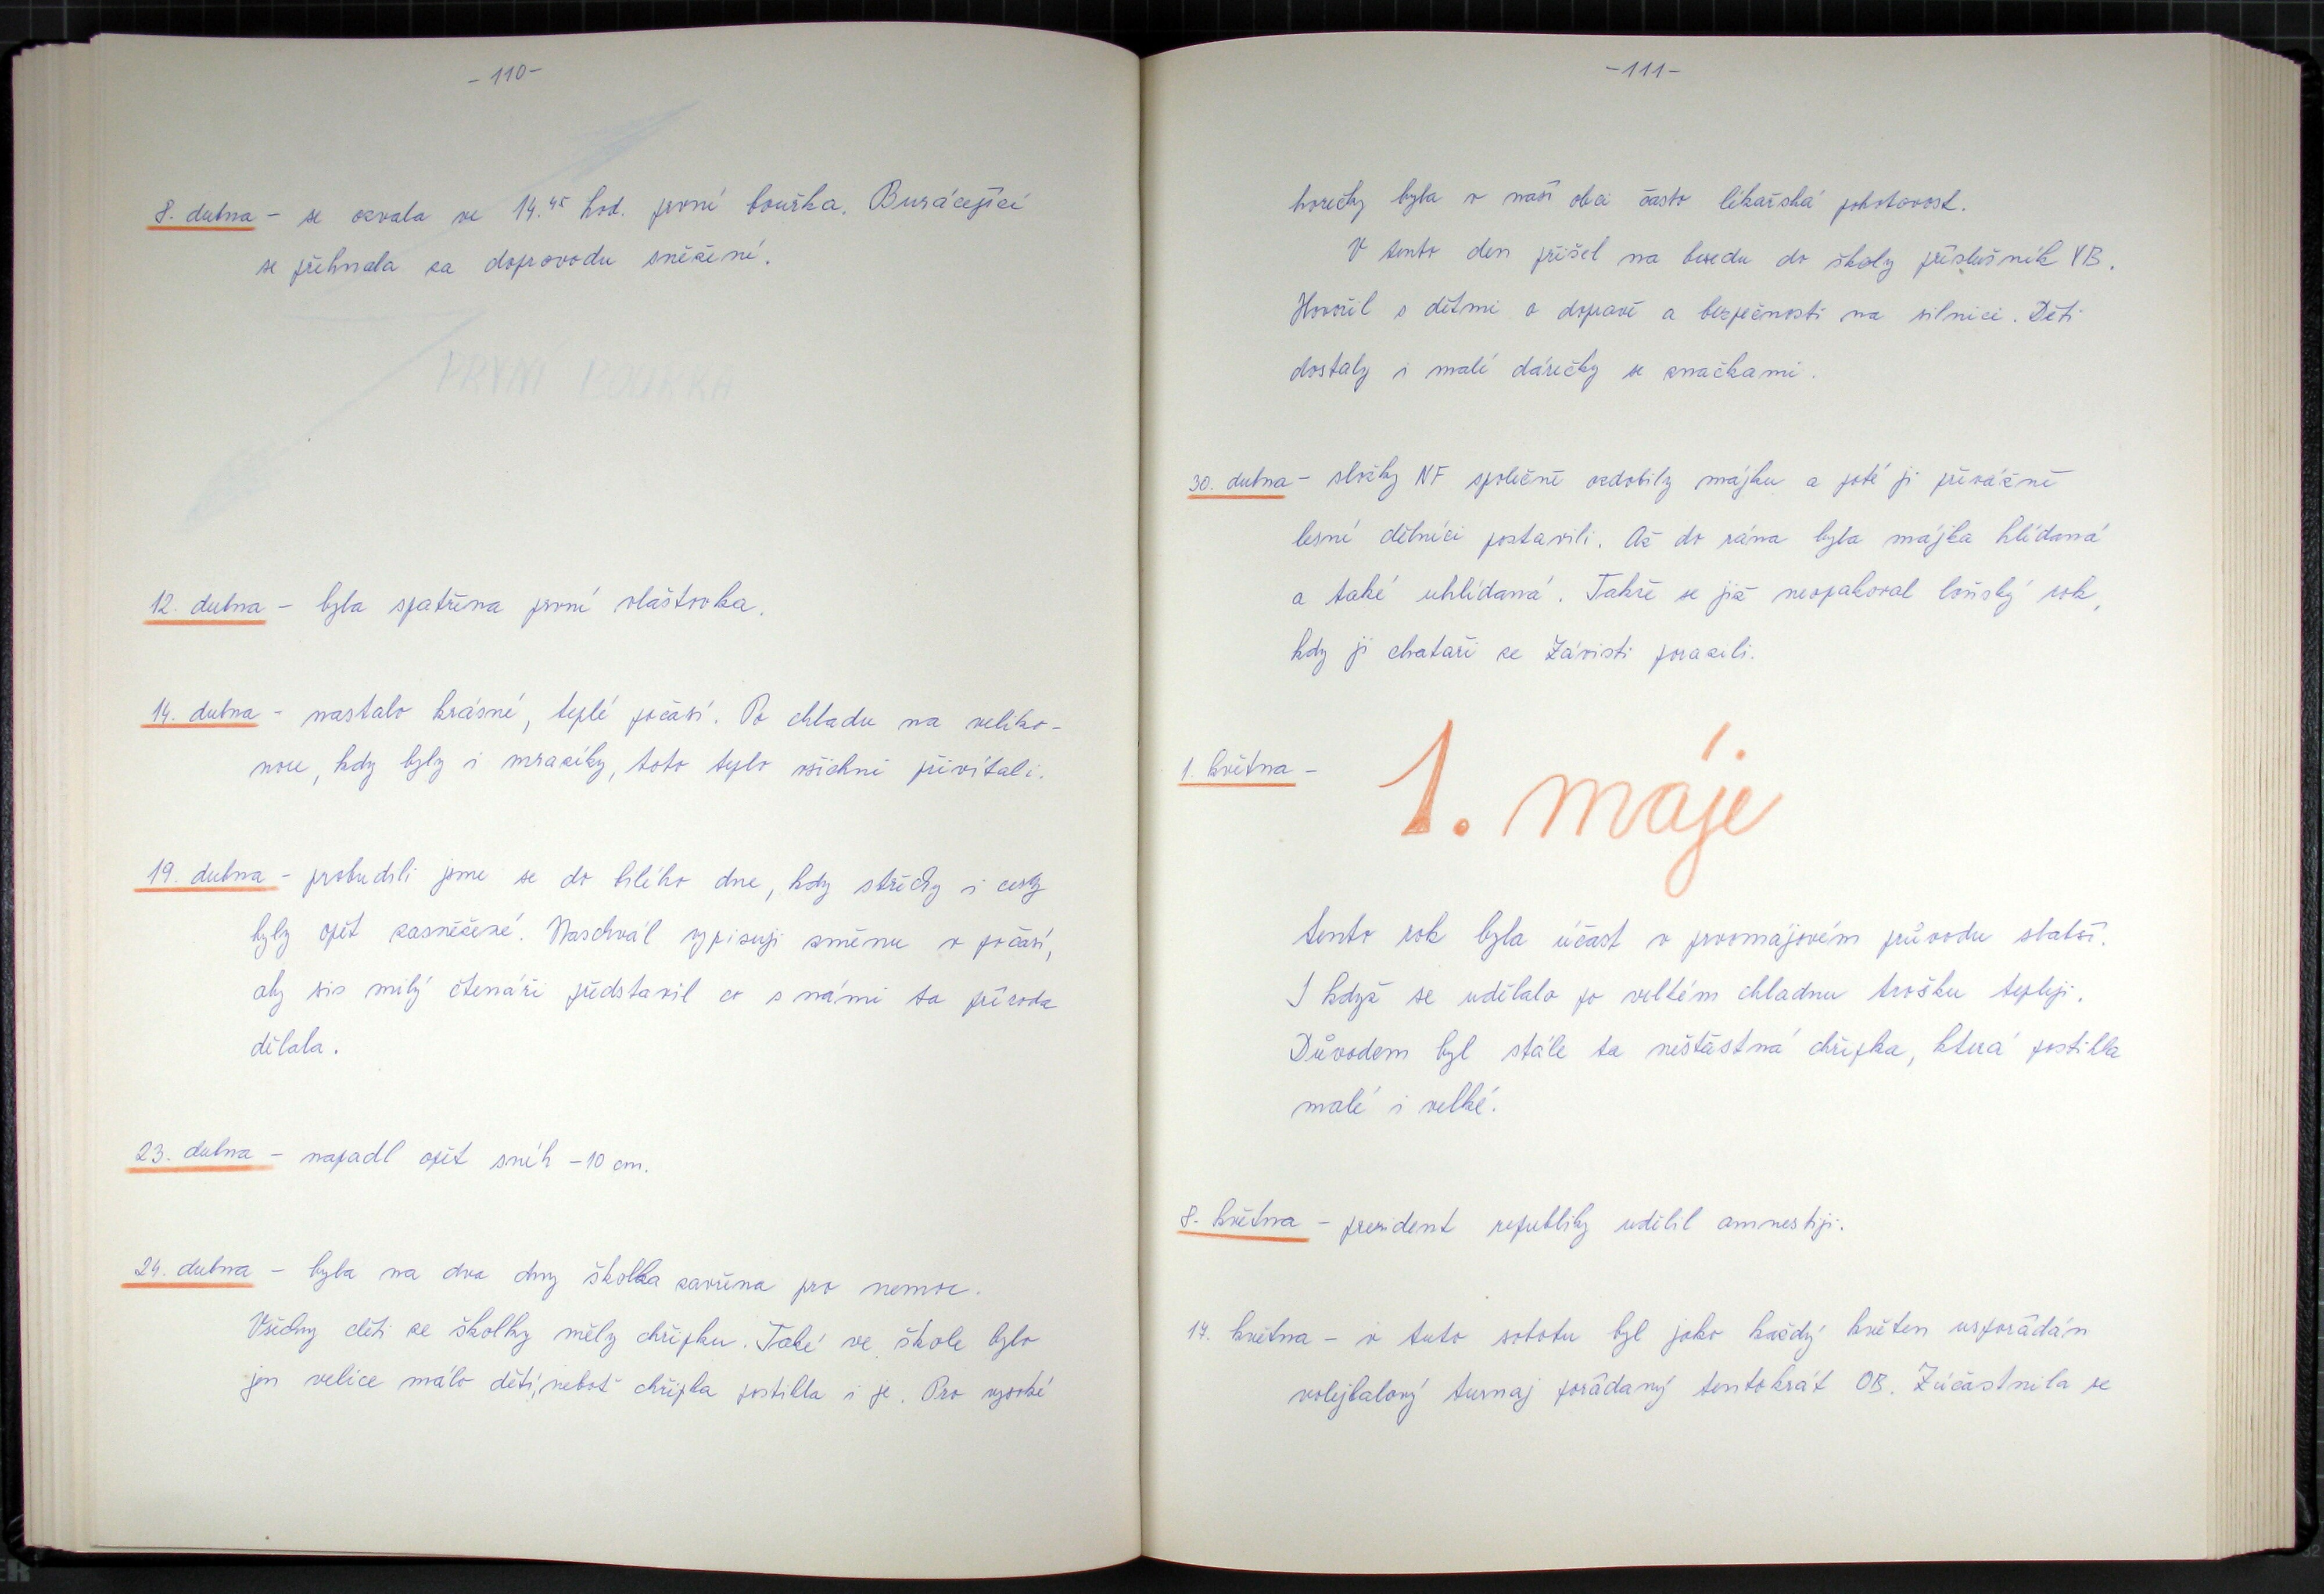 - 110 -
8. dubna - se ozvala ve 14.45 hod. první bouřka. Burácející
se přehnala za doprovodu sněžení.
PRVNÍ BOUŘKA
12. dubna - byla spatřena první vlaštovka.
14. dubna - nastalo krásné, teplé počasí. Po chladu na veliko-
noce, kdy byly i mrazíky, toto teplo všichni přivítali.
19. dubna - probudili jsme se do bílého dne, kdy střechy i cesty
byly opět zasněžené. Naschvál vypisuji změnu v počasí,
aby sis milý čtenáři představil co s námi ta příroda
dělala.
23. dubna - napadl opět sníh - 10 cm.
24. dubna - byla na dva dny školka zavřena pro nemoc.
Všechny děti ze školky měly chřipku. Také ve škole bylo
jen velice málo dětí, neboť chřipka postihla i je. Pro vysoké
- 111 -
horečky byla v naší obci často lékařská pohotovost.
V tento den přišel na besedu do školy příslušník VB.
Hovořil s dětmi o dopravě a bezpečnosti na silnici. Děti
dostaly i malé dárečky se značkami.
30. dubna - složky NF společně ozdobily májku a poté ji převážně
lesní dělníci postavili. Až do rána byla májka hlídaná
a také uhlídaná. Takže se již neopakoval loňský rok,
kdy ji chataři ze Závisti porazili.
1. května -
1. máje
tento rok byla účast v prvomájovém průvodu slabší.
I když se udělalo po velkém chladnu trošku tepleji.
Důvodem byl stále ta nešťastná chřipka, která postihla
malé i velké.
8. května - president republiky udělil amnestiji.
17. května - v tuto sobotu byl jako každý květen uspořádán
volejbalový turnaj pořádaný tentokrát OB. Zúčastnila se